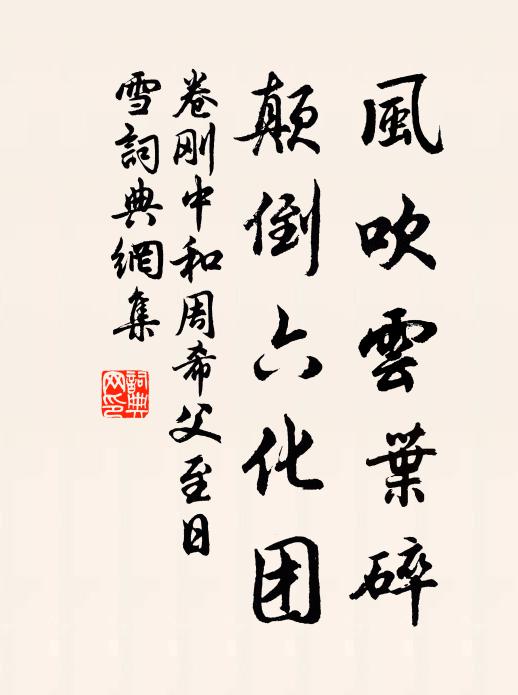 風吹雲葉碎
顛倒六化团
卷刚中和周希父至日
雪詞典網集
詞典
网印